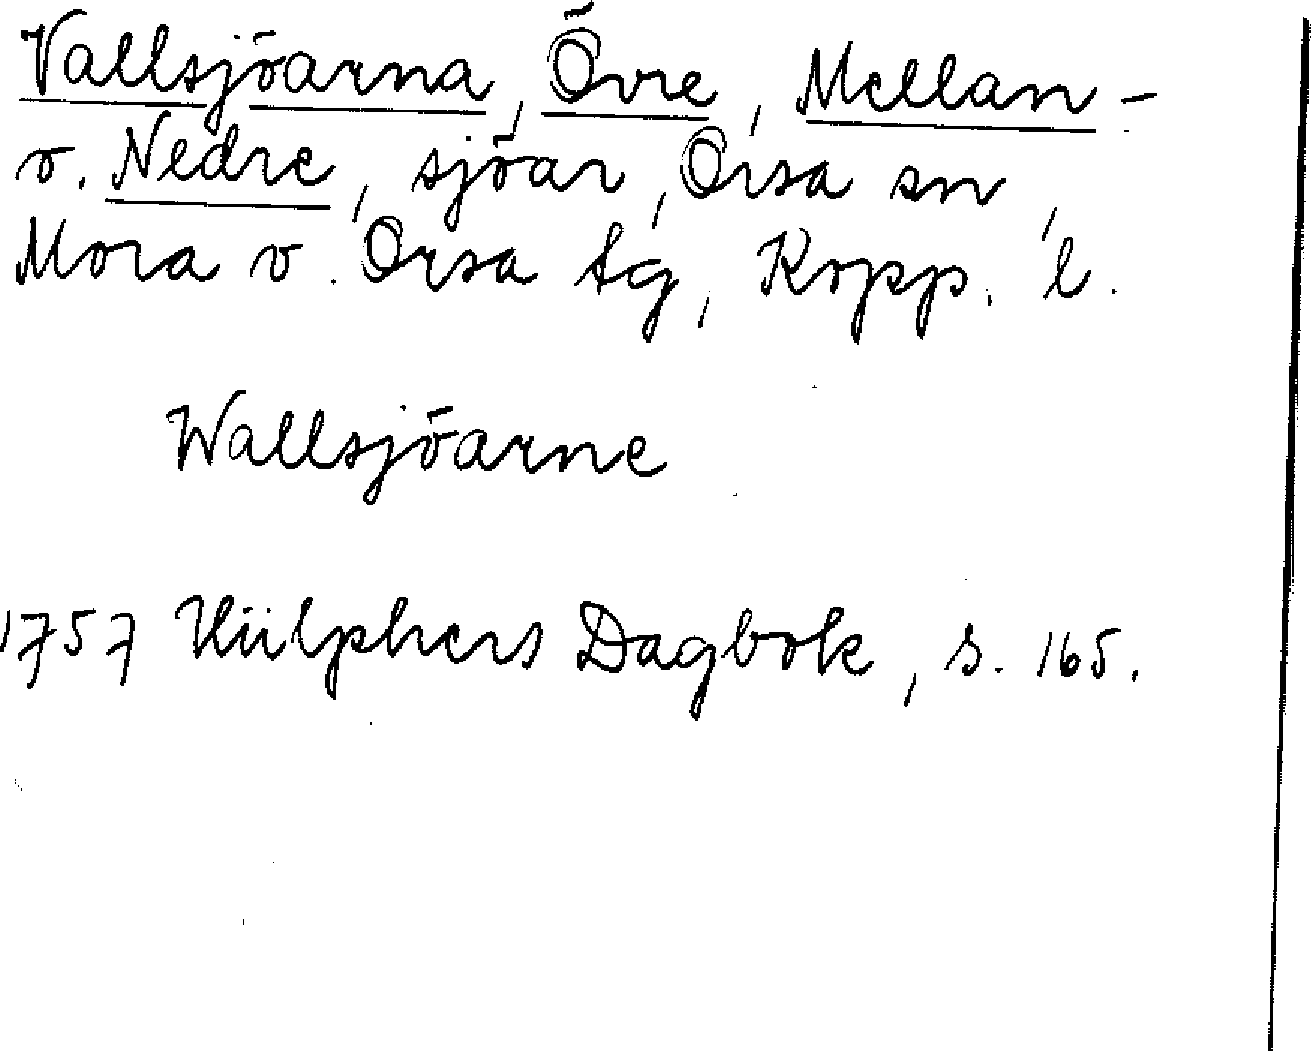 Vallsjöarna, Övre, Mellan-
o. Nedre, sjöar, Orsa sn,
Mora o. Orsa tg, Kopp. l.
Wallsjöarne
1757 Hülphers Dagbok, s. 165.